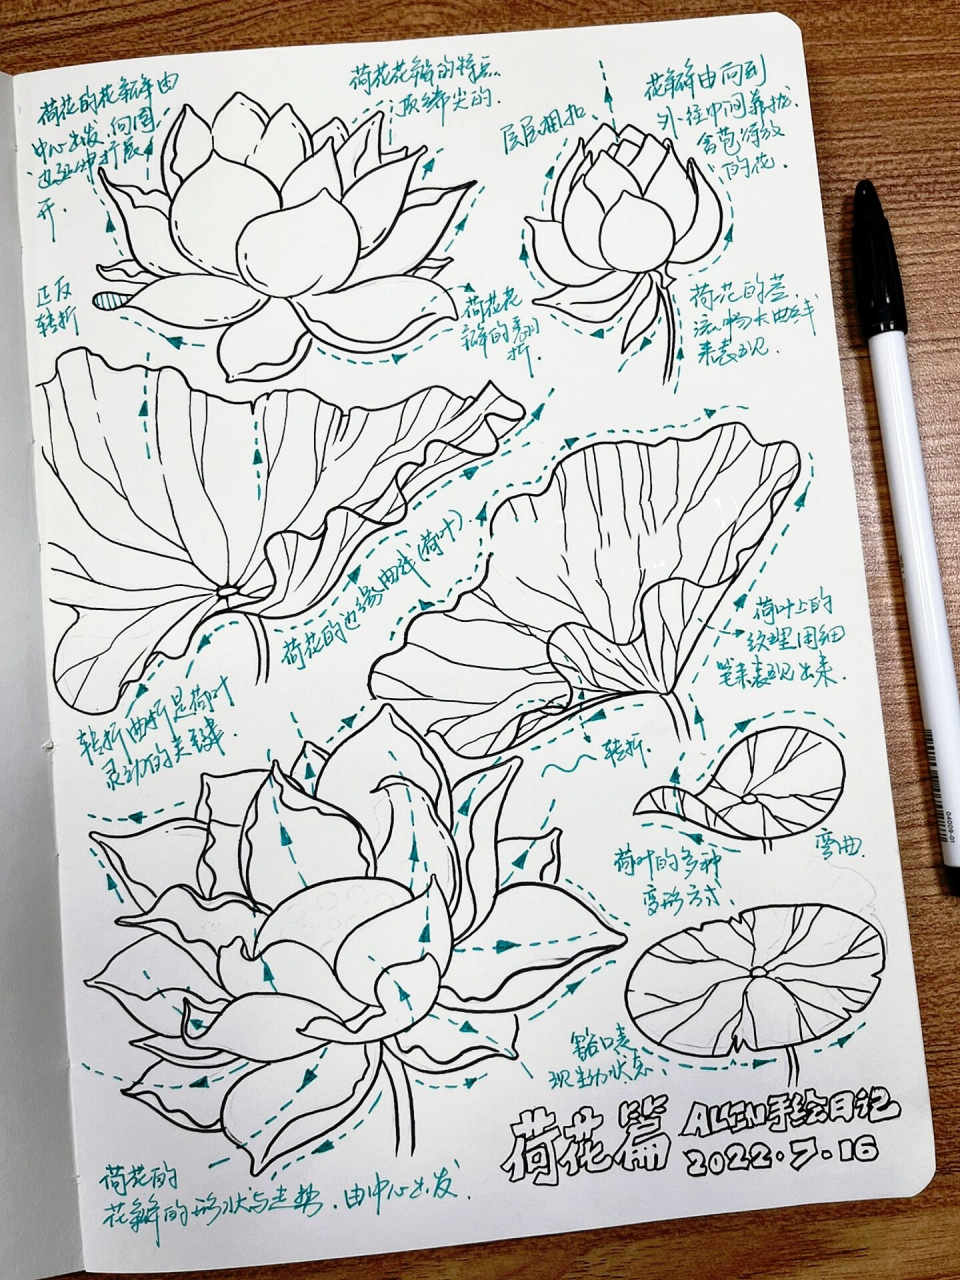 荷花的花瓣由
中心出发.向周
边延伸扩展
开.
荷花花瓣的特点
顶部尖的.
层层相扣
花瓣由向到
外往中间靠拢.
含苞待放
的花.
正反
转折
荷花花
瓣的翻
折.
荷花的茎.
流畅大曲线
来表现.
荷花的边缘曲线(荷叶)
荷叶上的
纹理用细
笔来表现出来.
转折曲折是荷叶
灵动的关键.
转折.
荷叶的多种
变形方式.
弯曲.
豁口表
现生动状态.
荷花的
花瓣的形状与走势.由中心出发.
荷花篇 ALIEN手绘日记
2022.7.16
04009-01